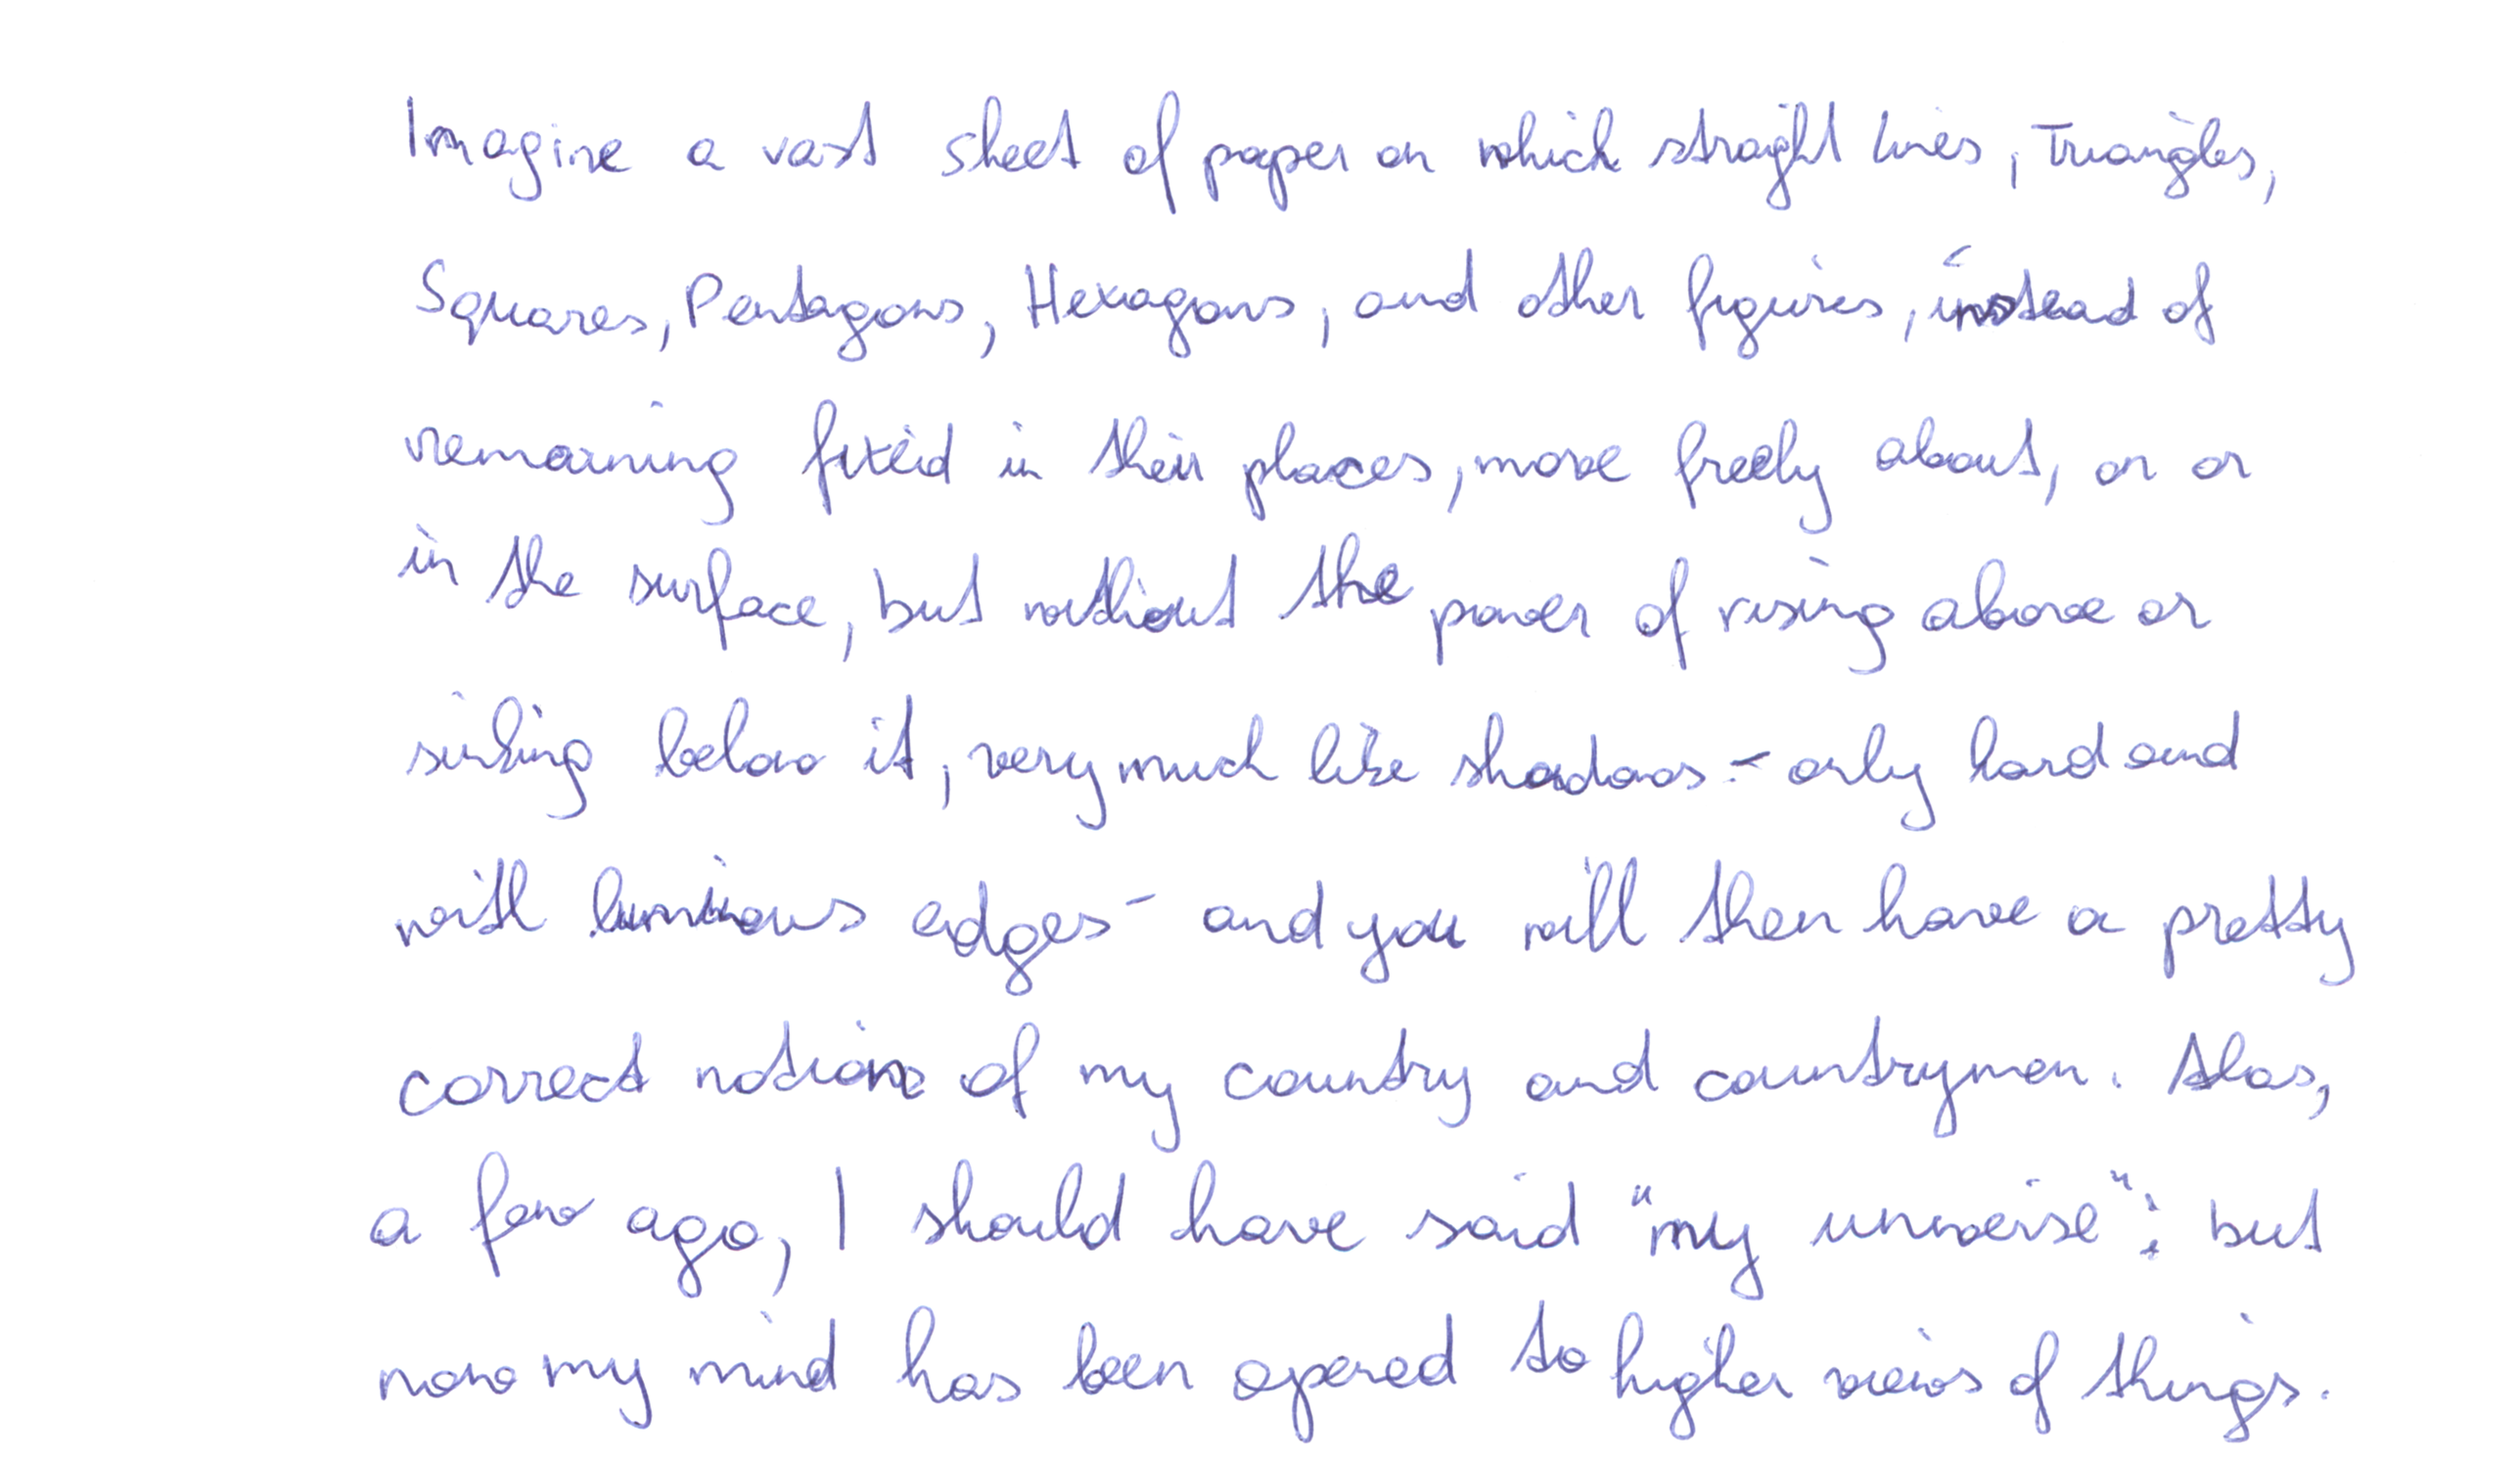 Imagine a vast sheet of paper on which straight lines, Triangles,
Squares, Pentagons, Hexagons, and other figures, instead of
remaining fixed in their places, move freely about, on or
in the surface, but without the power of rising above or
sinking below it, very much like shadows - only hard and
with luminous edges - and you will then have a pretty
correct notion of my country and countrymen. Alas,
a few ago, I should have said "my universe": but
now my mind has been opened to higher views of things.